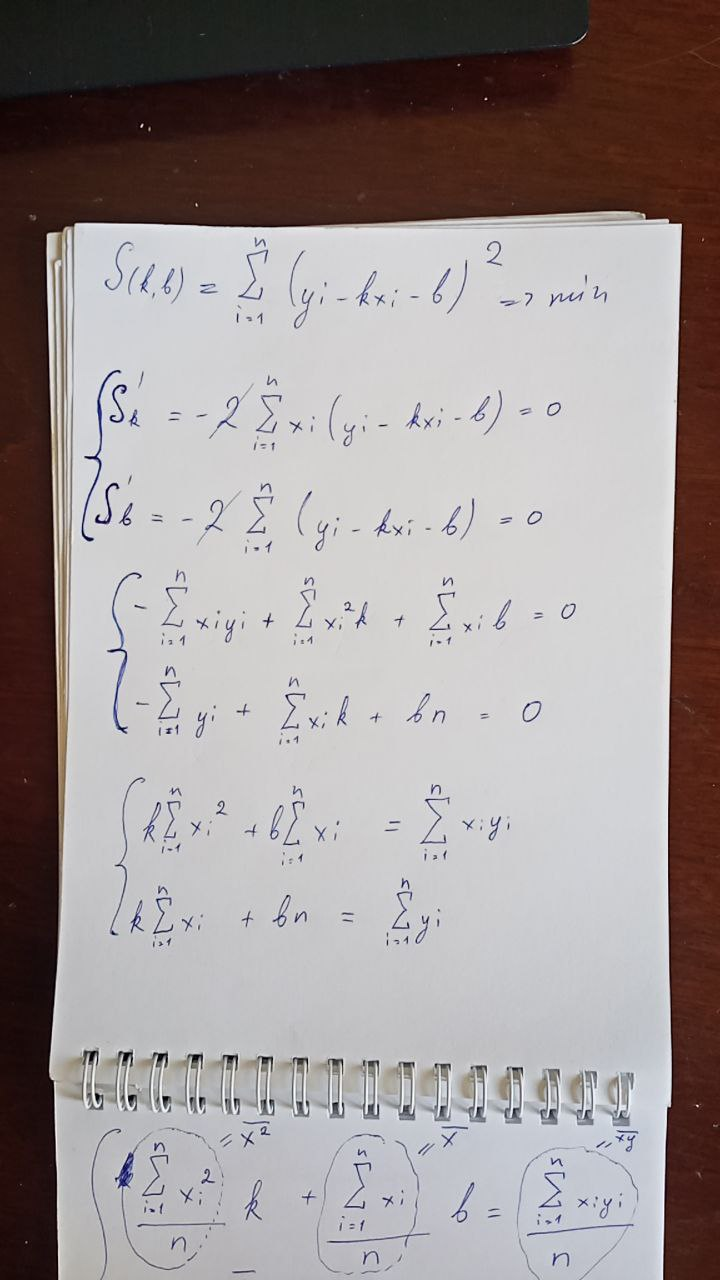 S(k,b) = ∑_{i=1}^{n} (yi - kxi - b)² => min
{ S'k = -2 ∑_{i=1}^{n} xi (yi - kxi - b) = 0
S'b = -2 ∑_{i=1}^{n} (yi - kxi - b) = 0
{ - ∑_{i=1}^{n} xiyi + ∑_{i=1}^{n} xi²k + ∑_{i=1}^{n} xi b = 0
- ∑_{i=1}^{n} yi + ∑_{i=1}^{n} xi k + bn = 0
{ k ∑_{i=1}^{n} xi² + b ∑_{i=1}^{n} xi = ∑_{i=1}^{n} xiyi
k ∑_{i=1}^{n} xi + bn = ∑_{i=1}^{n} yi
= x̅²̅ = x̅ = x̅y̅
{ (∑_{i=1}^{n} xi²)/n k + (∑_{i=1}^{n} xi)/n b = (∑_{i=1}^{n} xiyi)/n